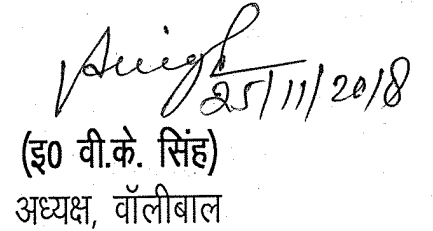 Singh
25/11/2018
(इ0 वी.के. सिंह)
अध्यक्ष, वॉलीबाल